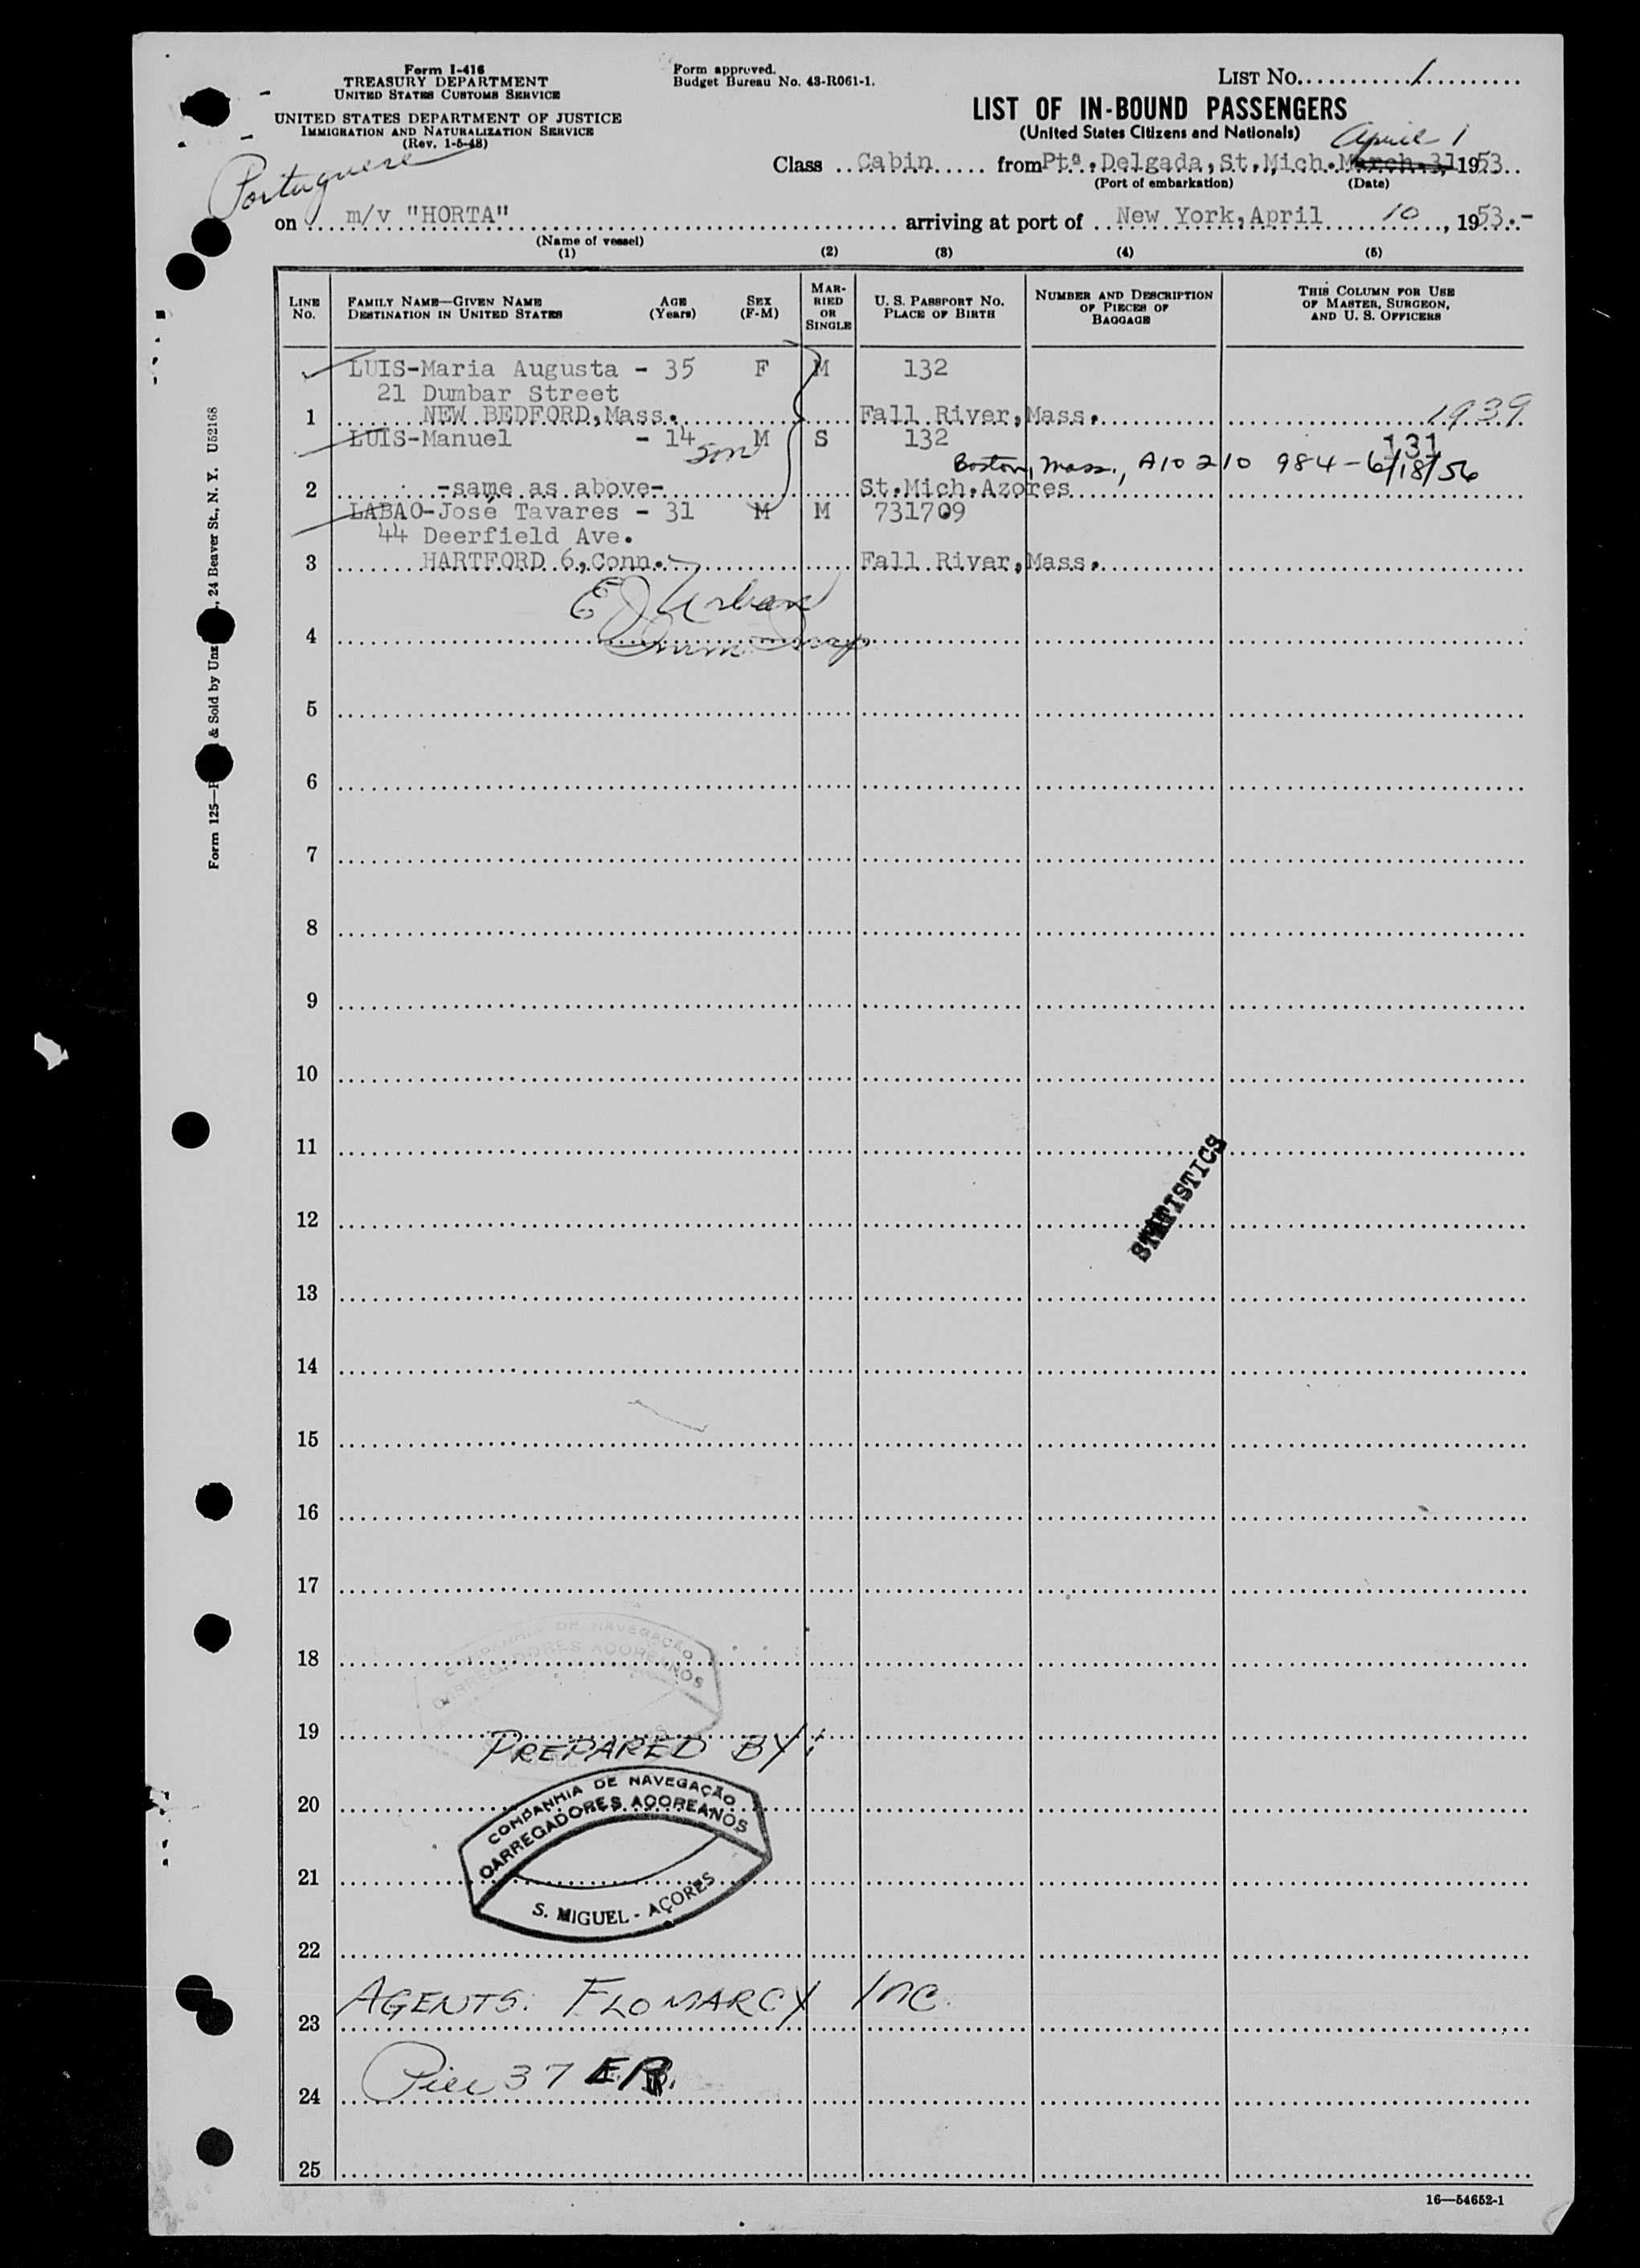 Form I-416
TREASURY DEPARTMENT
UNITED STATES CUSTOMS SERVICE
UNITED STATES DEPARTMENT OF JUSTICE
IMMIGRATION AND NATURALIZATION SERVICE
(Rev. 1-5-48)
Form approved.
Budget Bureau No. 43-R061-1.
LIST NO. 1
LIST OF IN-BOUND PASSENGERS
(United States Citizens and Nationals)
April 1
Class Cabin from Ptª. Delgada, St. Mich. March 31 1953
(Port of embarkation) (Date)
Portuguese
on m/v "HORTA" arriving at port of New York, April 10, 1953.-
(Name of vessel)
(1) (2) (3) (4) (5)
LINE NO. FAMILY NAME—GIVEN NAME DESTINATION IN UNITED STATES AGE (Years) SEX (F-M) MARRIED OR SINGLE U. S. PASSPORT NO. PLACE OF BIRTH NUMBER AND DESCRIPTION OF PIECES OF BAGGAGE THIS COLUMN FOR USE OF MASTER, SURGEON, AND U. S. OFFICERS
LUIS-Maria Augusta - 35 F M 132
21 Dumbar Street
1 NEW BEDFORD, Mass. Fall River, Mass. 1939
LUIS-Manuel - 14 son M S 132 131
Boston, Mass., A10 210 984 - 6/18/56
2 -same as above- St. Mich. Azores
LABAO-José Tavares - 31 M M 731709
44 Deerfield Ave.
3 HARTFORD 6, Conn. Fall River, Mass.
E J Urban
4
5
6
7
8
9
10
11
STATISTICS
12
13
14
15
16
17
COMPANHIA DE NAVEGAÇÃO
CARREGADORES AÇOREANOS
18
19
PREPARED BY:
COMPANHIA DE NAVEGAÇÃO
CARREGADORES AÇOREANOS
S. MIGUEL - AÇORES
20
21
22
AGENTS: FLOMARCY INC.
23
Pier 37 E.R.
24
25
16—54652-1
Form 125— & Sold by Unz , 24 Beaver St., N. Y. U52168